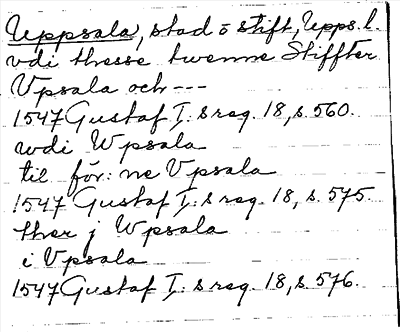 Uppsala, stad o stift, Upps. l.
vdi thesse twenne Stiffter
Vpsala och ---
1547 Gustaf I:s reg. 18, s. 560.
wdi Wpsala
til för:ne Vpsala
1547 Gustaf I:s reg. 18, s. 575.
ther j Wpsala
i Vpsala
1547 Gustaf I:s reg. 18, s. 576.